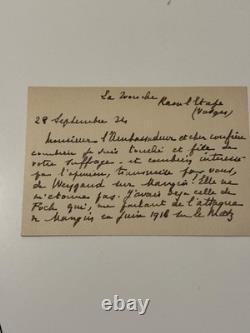 La
Raon l'Etape
(Vosges)
28 Septembre 24
Monsieur l'Ambassadeur et cher confrère
combien je suis touché et fier de
votre suffrage - et combien intéressé
par l'opinion, transmise par vous,
de Weygand sur Mangin! Elle ne
m'étonne pas. J'avais déjà celle de
Foch qui, me parlant de l'attaque
de Mangin en juin 1918 sur le Matz